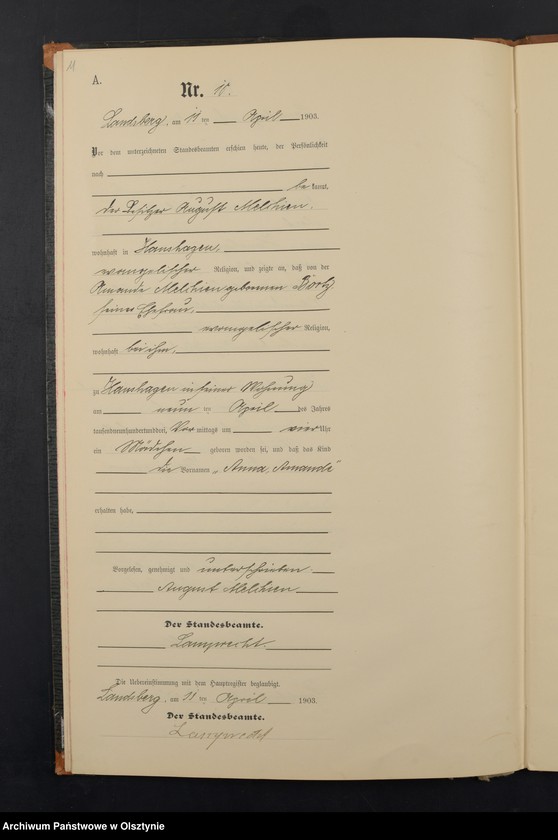 11
A.
Nr. 10.
Landsberg, am 11 ten April 1903.
Vor dem unterzeichneten Standesbeamten erschien heute, der Persönlichkeit
nach
be kannt,
der Besitzer August Melchien,
wohnhaft in Hanshagen,
evangelischer Religion, und zeigte an, daß von der
Amande Melchien geborenen
seiner Ehefrau,
evangelischer Religion,
wohnhaft bei ihm,
zu Hanshagen in seiner Wohnung
am neun ten April des Jahres
tausendneunhundertunddrei, Vor mittags um vier Uhr
ein Mädchen geboren worden sei, und daß das Kind
die Vornamen Anna, Amande
erhalten habe,
Vorgelesen, genehmigt und unterschrieben.
August Melchien
Der Standesbeamte.
Lamprecht.
Die Uebereinstimmung mit dem Hauptregister beglaubigt.
Landsberg, am 11 ten April 1903.
Der Standesbeamte.
Lamprecht
Archiwum Państwowe w Olsztynie